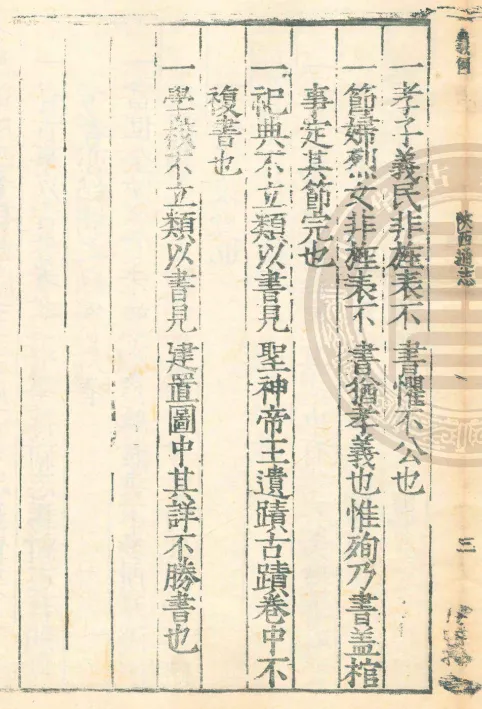 義例
陝西通志
三
一孝子義民非旌表不書懼不公也
一節婦烈女非旌表不書猶孝義也惟殉乃書盖棺
事定其節完也
一祀典不立類以書見聖神帝王遺蹟古蹟卷中不
複書也
一學校不立類以書見建置圖中其詳不勝書也